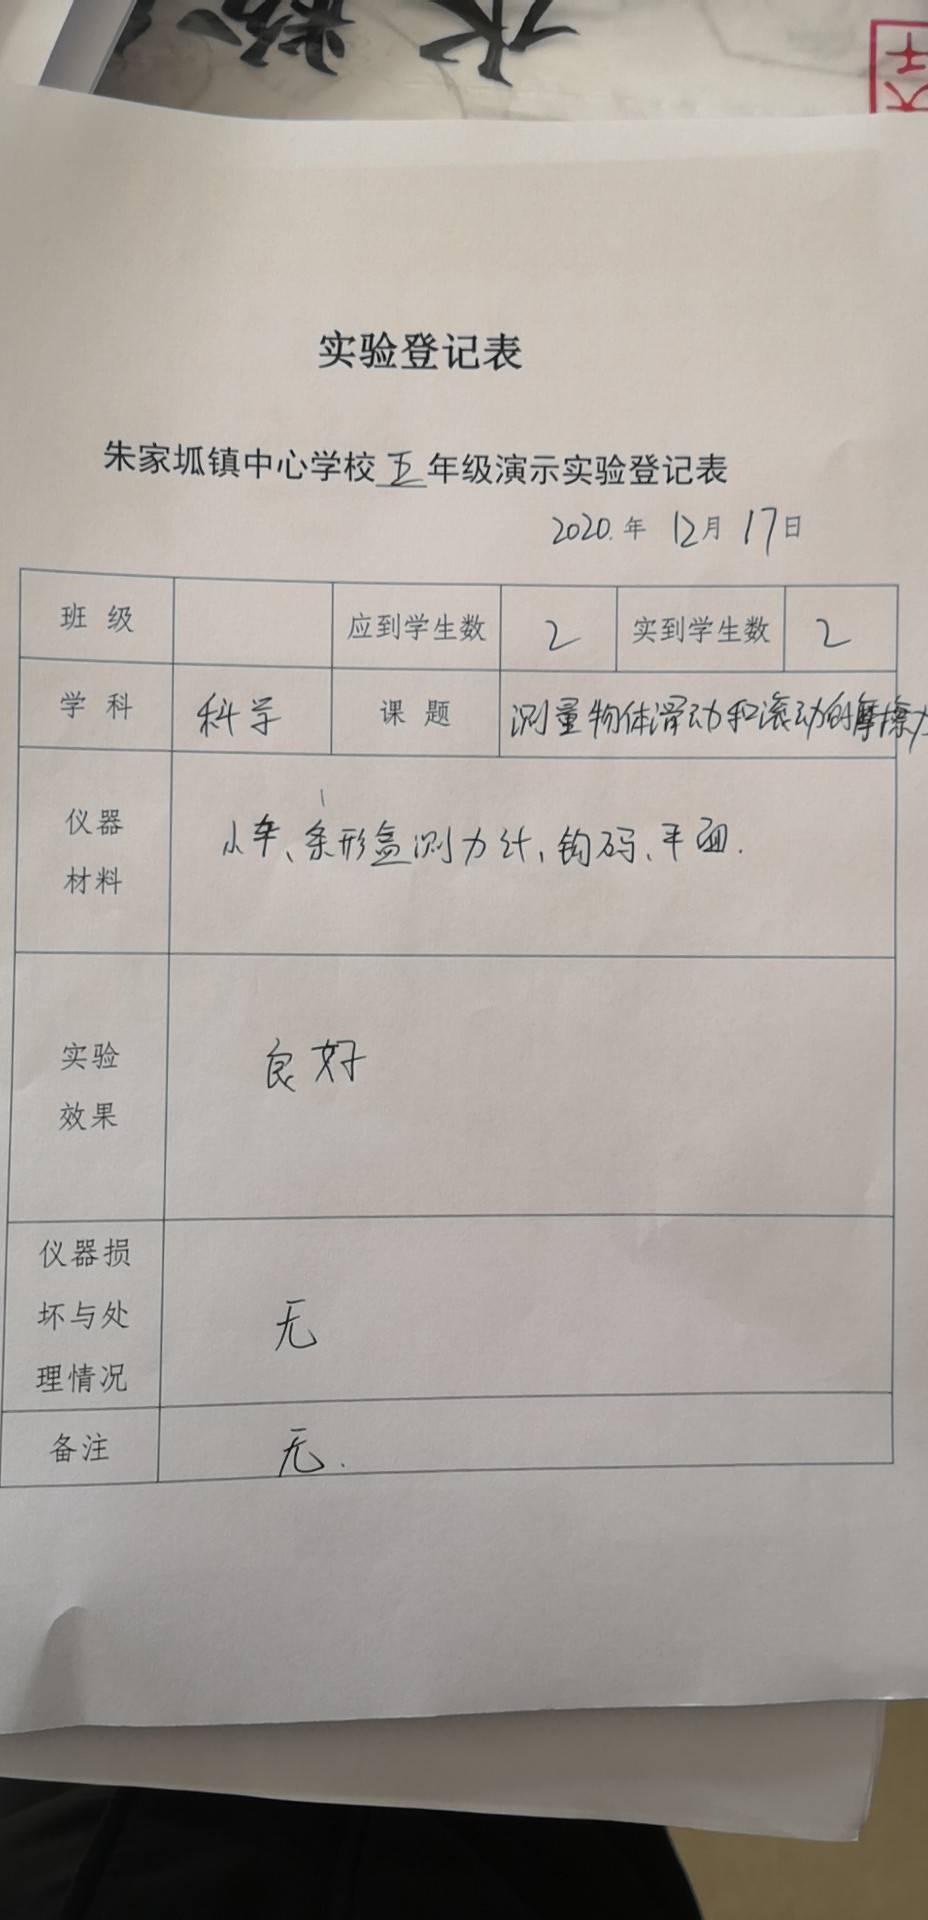 水
实验登记表
朱家坬镇中心学校五年级演示实验登记表
2020.年 12月 17日
班 级 应到学生数 2 实到学生数 2
学 科 科学 课 题 测量物体滑动和滚动的摩擦力
仪器
材料
小车、条形盒测力计、钩码、平面.
实验
效果
良好
仪器损
坏与处
理情况
无
备注 无.